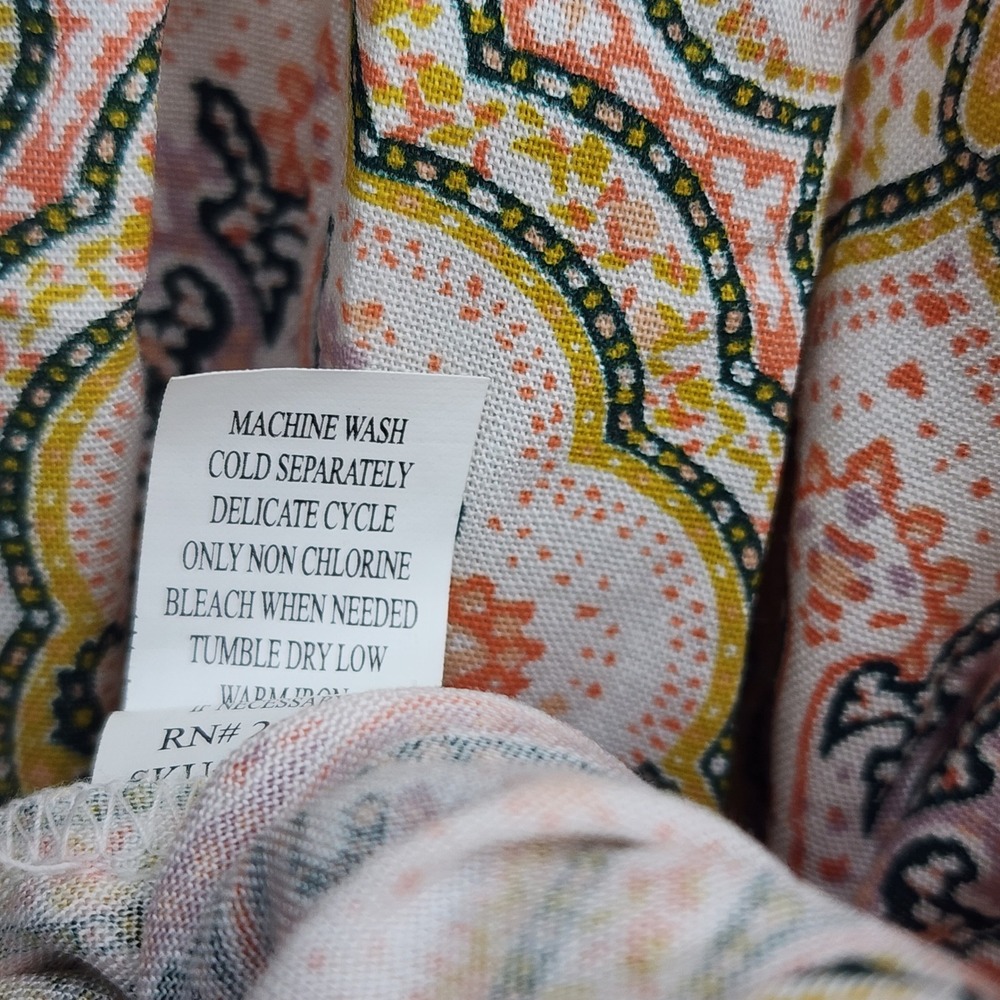 MACHINE WASH
COLD SEPARATELY
DELICATE CYCLE
ONLY NON CHLORINE
BLEACH WHEN NEEDED
TUMBLE DRY LOW
WARM IRON
IF NECESSARY
RN# 2
SKU